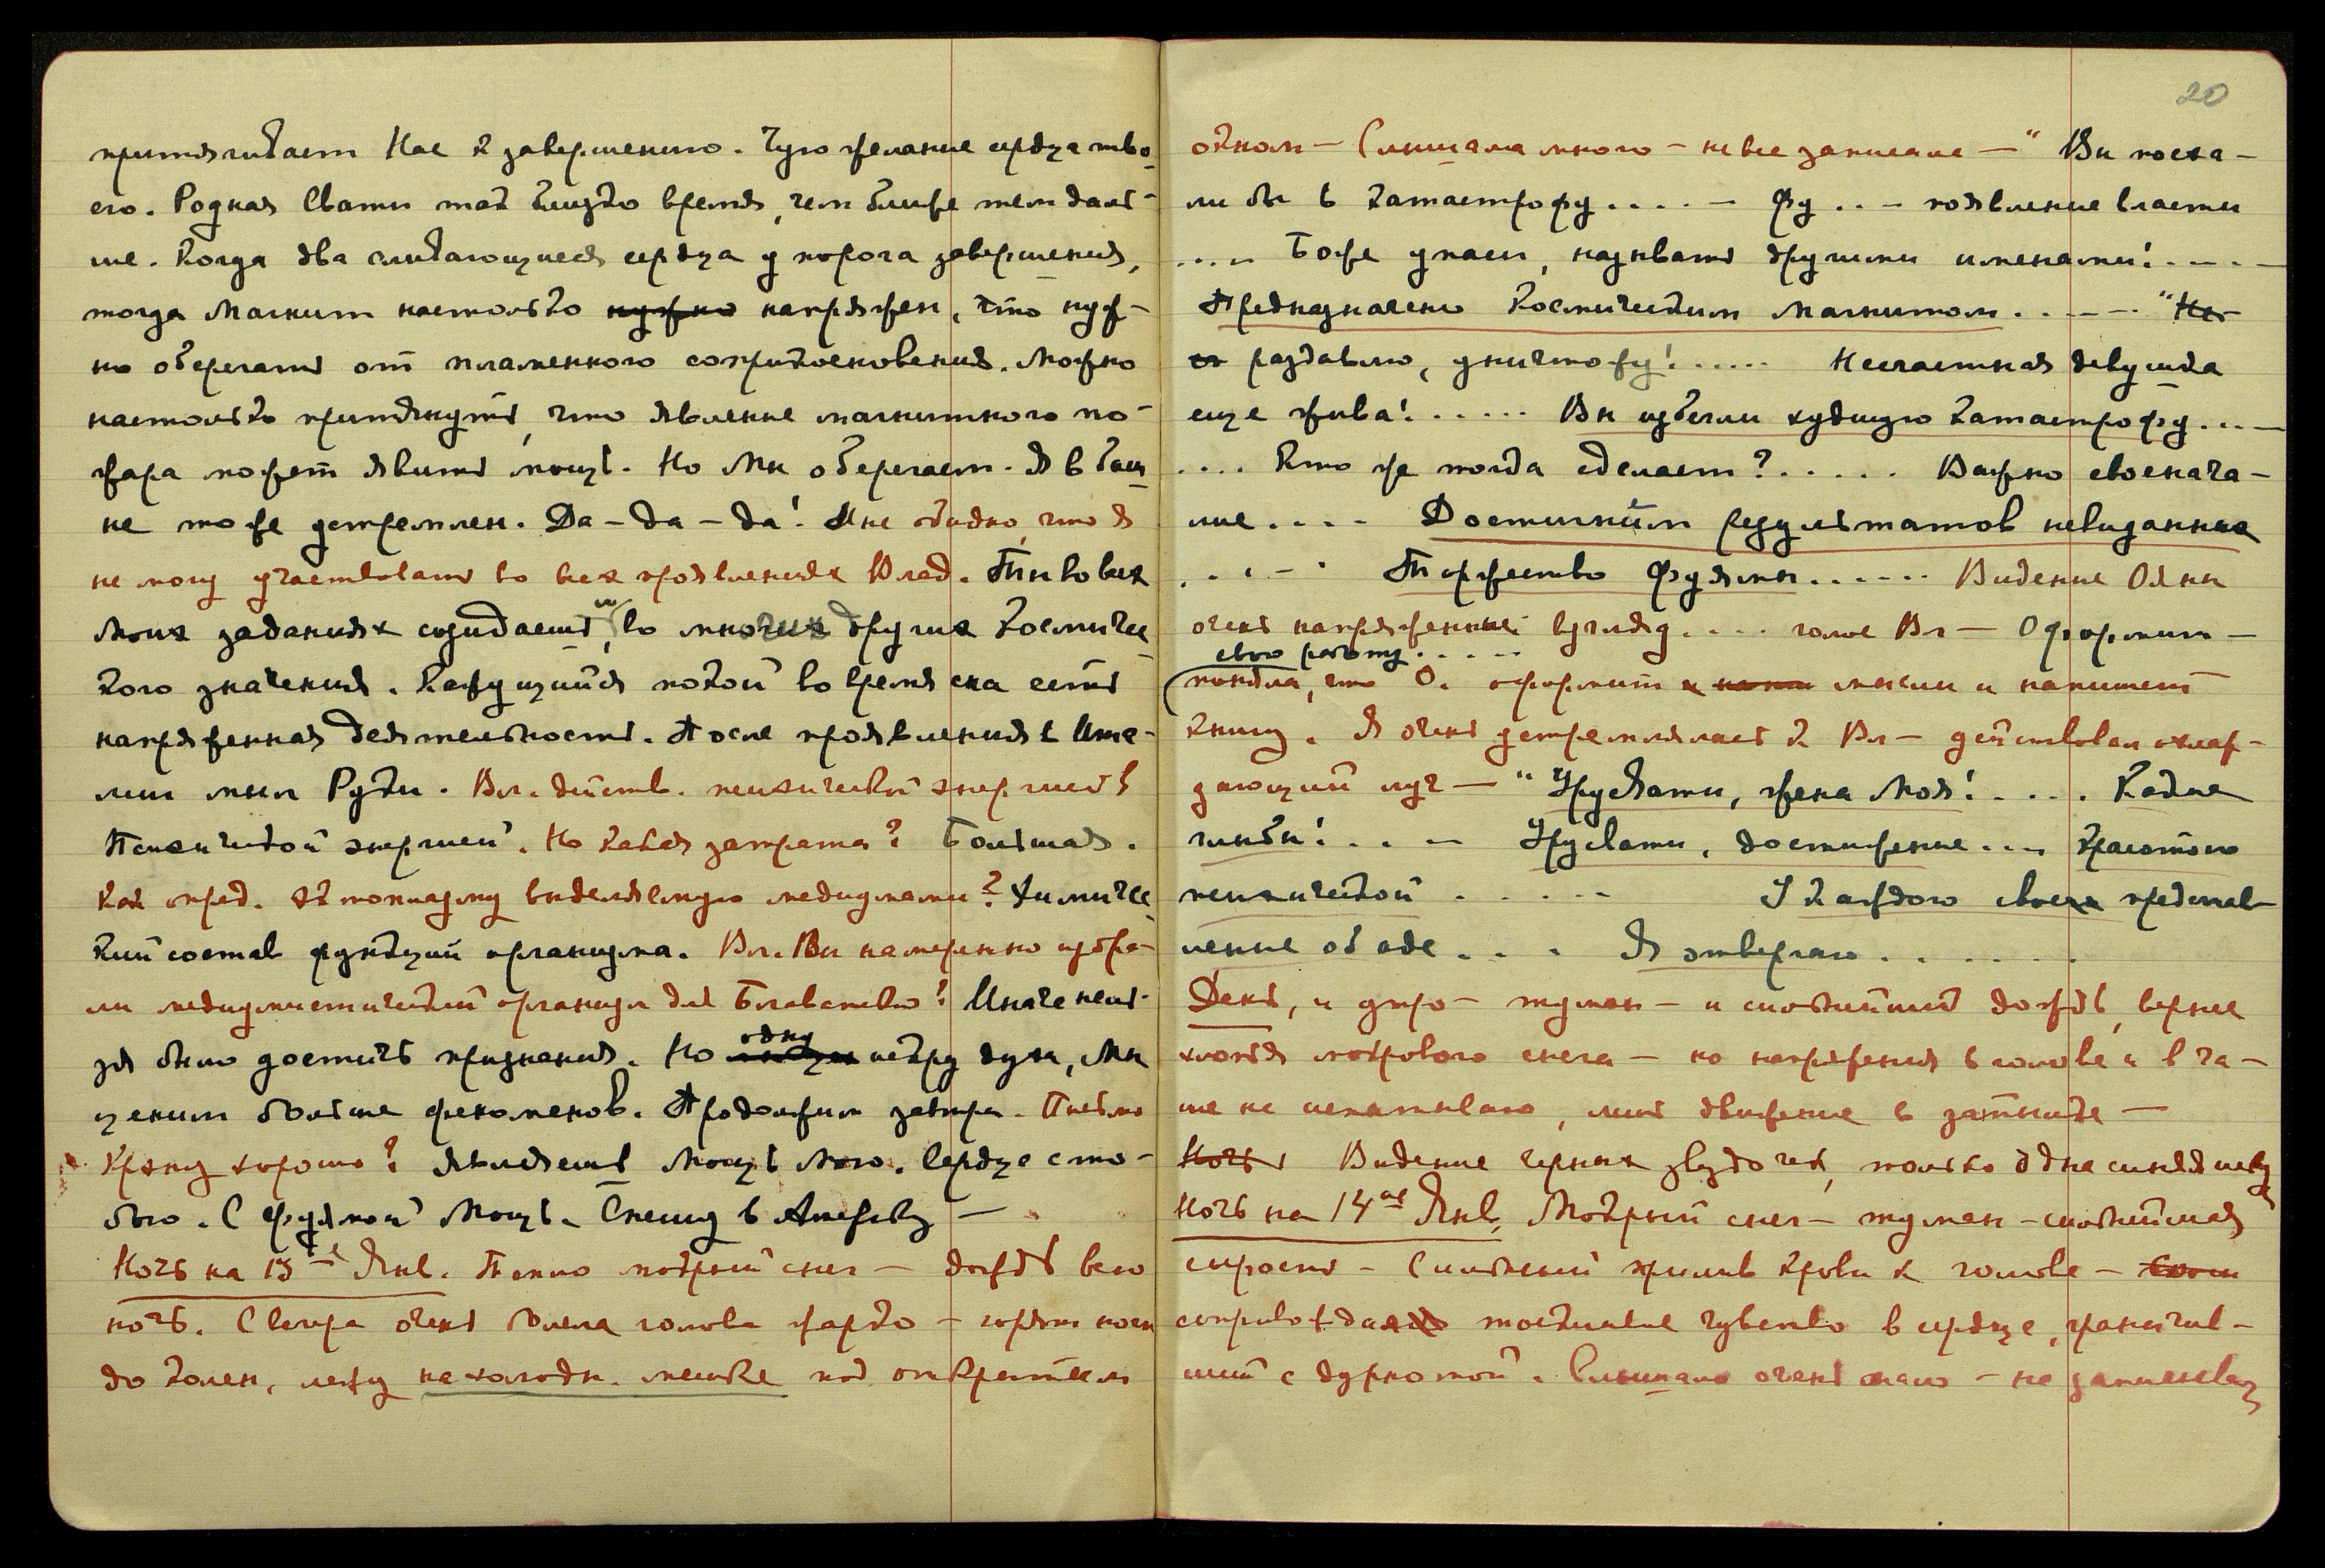 притягивает Нас к завершению. Чую желание сердца тво-
его. Родная Свати так близко время, чем ближе тем даль-
ше. Когда два сливающиеся сердца у порога завершения,
тогда Магнит настолько нужно напряжен, что нуж-
но оберегать от пламенного соприкосновения. Можно
настолько притянуть, что явление магнитного по-
жара может явить мощь. Но Мы оберегаем. Я в баш
не тоже устремлен. Да-да-да! Мне обидно, что я
не могу участвовать во всех проявлениях Влад. Ты во всех
Моих заданиях созидаешь, и во многих других космичес
кого значения. Кажущийся покой во время сна есть
напряженная деятельность. После проявления в Ита-
лии мыл Руки. Вл. действ. психической энергией?
Психической энергией. Но какая затрата? Большая.
Как опред. эктоплазму выделяемую медиумами? Химичес
кий состав функций организма. Вл. Вы намеренно избра-
ли медиумистический организм для Блаватской? Иначе нель-
зя было достичь признания. Но одну искру духа, Мы
ценим больше феноменов. Продолжим завтра. Письмо
Крэну хорошо? Являешь Мощь Мою. Сердце с то-
бою. С Фуямой Мощь. Спешу в Америку —
Ночь на 13-ое Янв. Тепло мокрый снег — дождь всю
ночь. С вечера очень болела голова жарко — горят ноги
до колен, лежу на холодн. мешке под открытым
20
окном — Слышала много — не все записала — " Вы попа-
ли бы в катастрофу.... — Фу.. — появление власти
.... Боже упаси, называть другими именами!....
Предназначено Космическим Магнитом...... "Не
ег раздавлю, уничтожу!..... Несчастная девушка
еще жива!..... Вы избегли худшую катастрофу....
.... Кто же тогда сделает?..... Важно своенача-
лие.... Достигнём результатов невиданных
.... Торжество Фуямы...... Видение Ояны
очень напряженный взгляд.... голос Вл — Оформит —
свою работу.....
(поняла, что О. оформит мысли и напишет
книгу. Я очень устремлялась к Вл — действовал охлаж-
дающий луч — " Урусвати, жена Моя!.... Какие
глыбы!... — Урусвати, достижение.... Красотою
психической..... У каждого своего представ-
ление об аде... Я отвергаю......
День, и утро — туман — и сильнейший дождь, вернее
хлопья мокрого снега — но напряжения в голове и в ча-
ше не испытываю, лишь движение в затылке —
Ночь Видение черных звездочек, только одна синяя между
Ночь на 14ое Янв. Мокрый снег — туман — сильнейшая
сырость — Сильный прилив крови к голове —
сопровождая тоскливое чувство в сердце, гранич-
ший с дурнотой. Слышала очень мало — не записываю